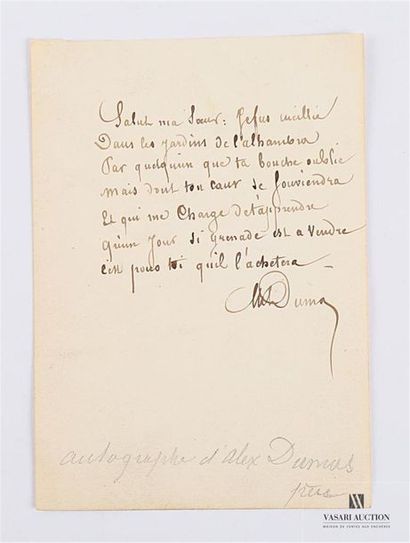 Salut ma Sœur: Je fus cueillie
Dans les jardins de l'alhambra
Par quelqu'un que ta bouche oublie
mais dont ton cœur se souviendra
Et qui me charge de t'apprendre
Qu'un jour si Grenade est a vendre
C'est pour toi qu'il l'achetera
Alex Dumas
autographe d'Alex Dumas
père
VASARI AUCTION
MAISON DE VENTES AUX ENCHÈRES